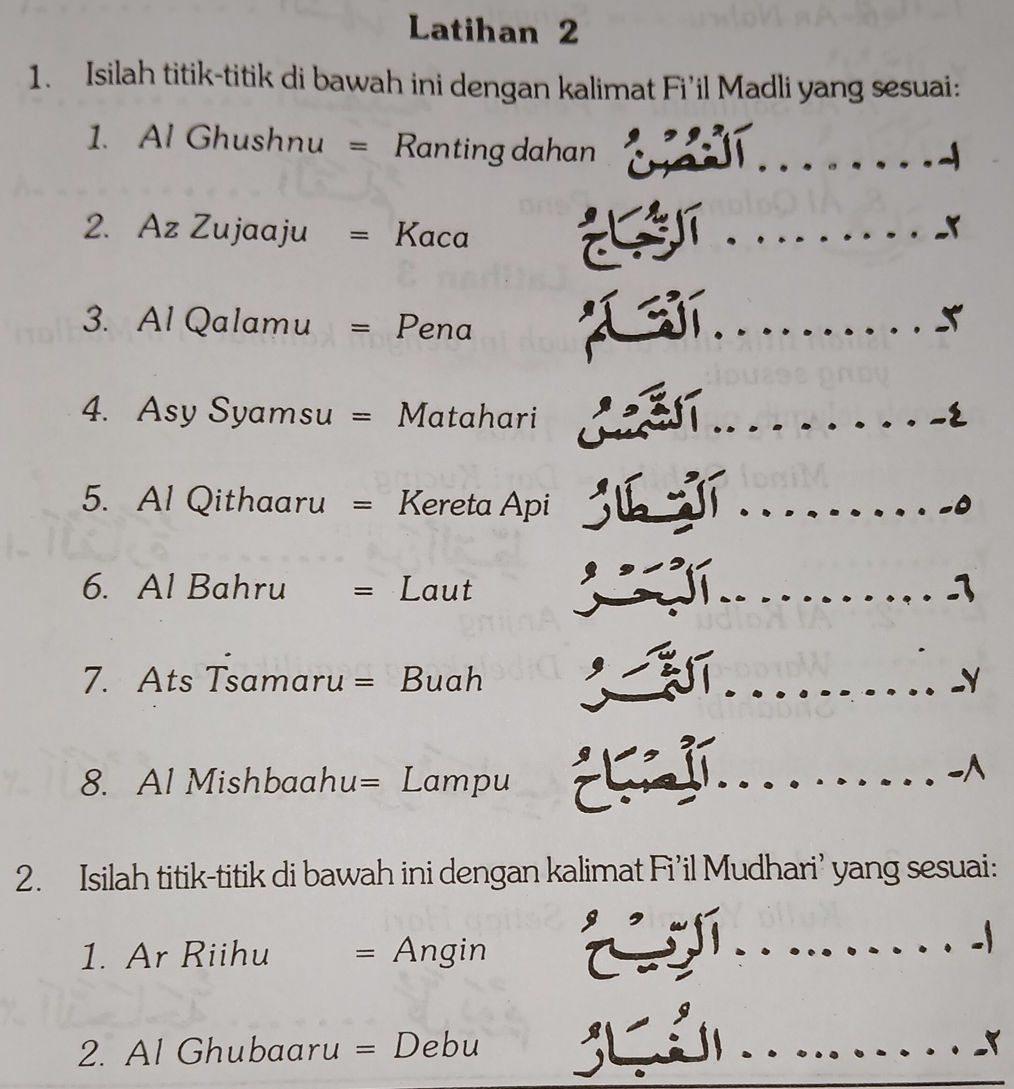 Latihan 2
1. Isilah titik-titik di bawah ini dengan kalimat Fi'il Madli yang sesuai:
1. Al Ghushnu = Ranting dahan ١- ......... اَلْغُصْنُ
2. Az Zujaaju = Kaca ٢- .......... اَلزُّجَاجُ
3. Al Qalamu = Pena ٣- .......... اَلْقَلَمُ
4. Asy Syamsu = Matahari ٤- .......... اَلشَّمْسُ
5. Al Qithaaru = Kereta Api ٥- .......... اَلْقِطَارُ
6. Al Bahru = Laut ٦- ............ اَلْبَحْرُ
7. Ats Tsamaru = Buah ٧- ............ اَلثَّمَرُ
8. Al Mishbaahu= Lampu ٨- .......... اَلْمِصْبَاحُ
2. Isilah titik-titik di bawah ini dengan kalimat Fi'il Mudhari' yang sesuai:
1. Ar Riihu = Angin ١- ........... اَلرِّيْحُ
2. Al Ghubaaru = Debu ٢- ........... الْغُبَارُ